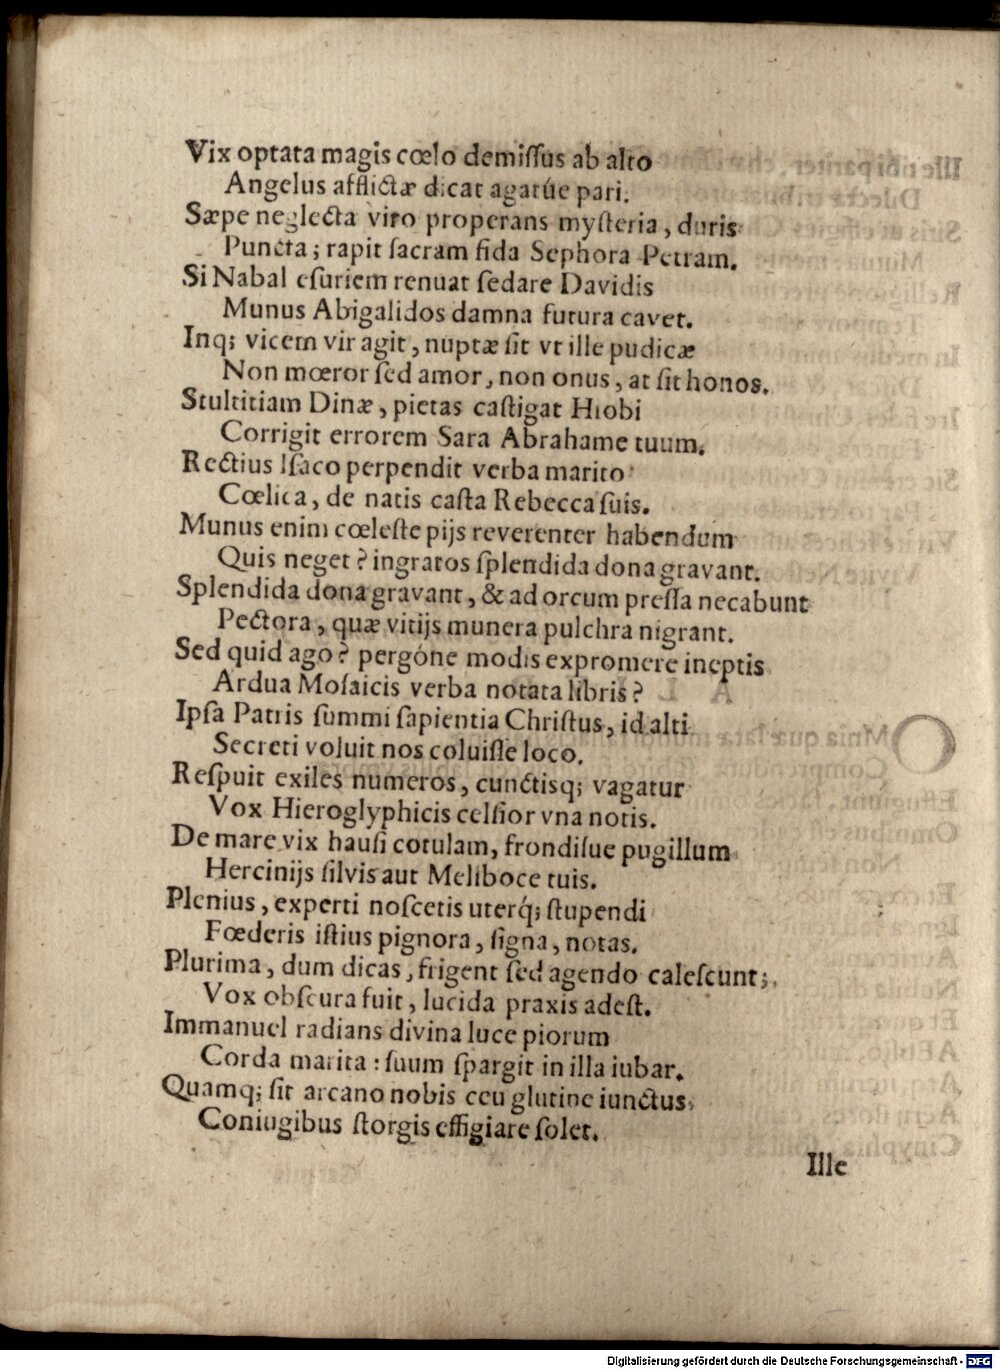 Vix optata magis cœlo demiſſus ab alto
Angelus afflictæ dicat agatúe pari.
Sæpe neglecta viro properans myſteria, duris
Puncta; rapit ſacram fida Sephora Petram.
Si Nabal eſuriem renuat ſedare Davidis
Munus Abigalidos damna futura cavet.
Inq; vicem vir agit, nuptæ ſit vt ille pudicæ
Non mœror ſed amor, non onus, at ſit honos.
Stultitiam Dinæ, pietas caſtigat Hiobi
Corrigit errorem Sara Abrahame tuum.
Rectius Iſaco perpendit verba marito
Cœlica, de natis caſta Rebecca ſuis.
Munus enim cœleſte pijs reverenter habendum
Quis neget? ingratos ſplendida dona gravant.
Splendida dona gravant, & ad orcum preſſa necabunt
Pectora, quæ vitijs munera pulchra nigrant.
Sed quid ago? pergóne modis expromere ineptis
Ardua Moſaicis verba notata libris?
Ipſa Patris ſummi ſapientia Chriſtus, id alti
Secreti voluit nos coluiſſe loco.
Reſpuit exiles numeros, cunctisq; vagatur
Vox Hieroglyphicis celſior vna notis.
De mare vix hauſi cotulam, frondiſue pugillum
Hercinijs ſilvis aut Meliboce tuis.
Plenius, experti noſcetis uterq́; ſtupendi
Fœderis iſtius pignora, ſigna, notas.
Plurima, dum dicas, frigent ſed agendo caleſcunt;
Vox obſcura fuit, lucida praxis adeſt.
Immanuel radians divina luce piorum
Corda marita: ſuum ſpargit in illa iubar.
Quamq; ſit arcano nobis ceu glutine iunctus,
Coniugibus ſtorgis effigiare ſolet.
Ille
Digitalisierung gefördert durch die Deutsche Forschungsgemeinschaft - DFG